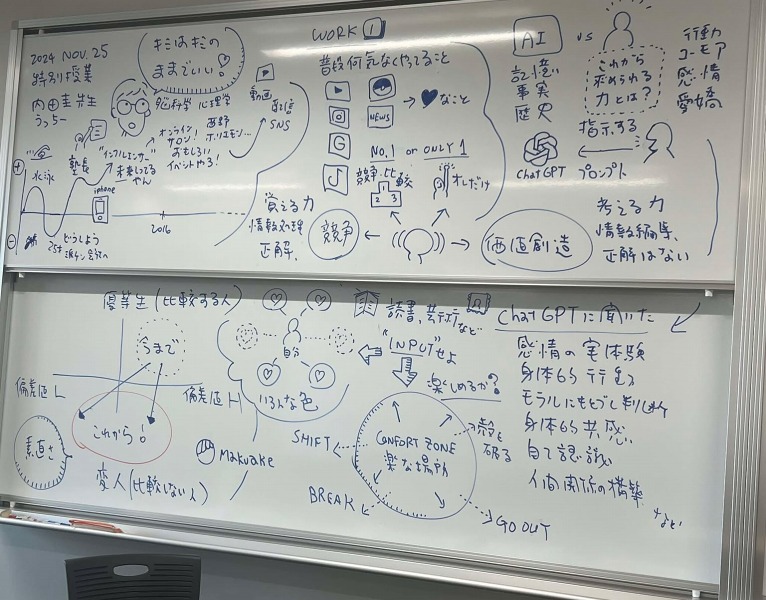 2024 NOV. 25
特別授業
内田圭先生
うっちー
キミはキミの
ままでいい!
脳科学 心理学
動画
配信
SNS
水泳
塾長
"インフルエンサー"
未来してる
やん
オンライン
サロン!
おもしろい
イベントやろ!
西野
ホリエモン...
iphone
どうしよう
25才
2016
WORK 1
普段何気なくやってること
NEWS
→♥なこと
NO.1 or ONLY 1
競争・比較
1
2
3
オレだけ
覚える力
情報処理
正解、
競争
価値創造
AI
vs
記憶
事実
歴史
これから
求められる
力とは?
行動
ユーモア
感情
愛嬌
指示する
ChatGPT
プロンプト
考える力
情報編集、
正解はない
優等生(比較する人)
今まで
偏差値 L
偏差値 H
これから!
素直さ
変人(比較しない人)
自分
いろんな色
Makuake
読書、
など
"INPUT"せよ
楽しめるか?
COMFORT ZONE
楽な場所
殻を
破る
SHIFT
BREAK
GO OUT
ChatGPTに聞いた
感情の実体験
身体的行動
モラルにもとづく判断
身体的共感
自己認識
人間関係の構築
など